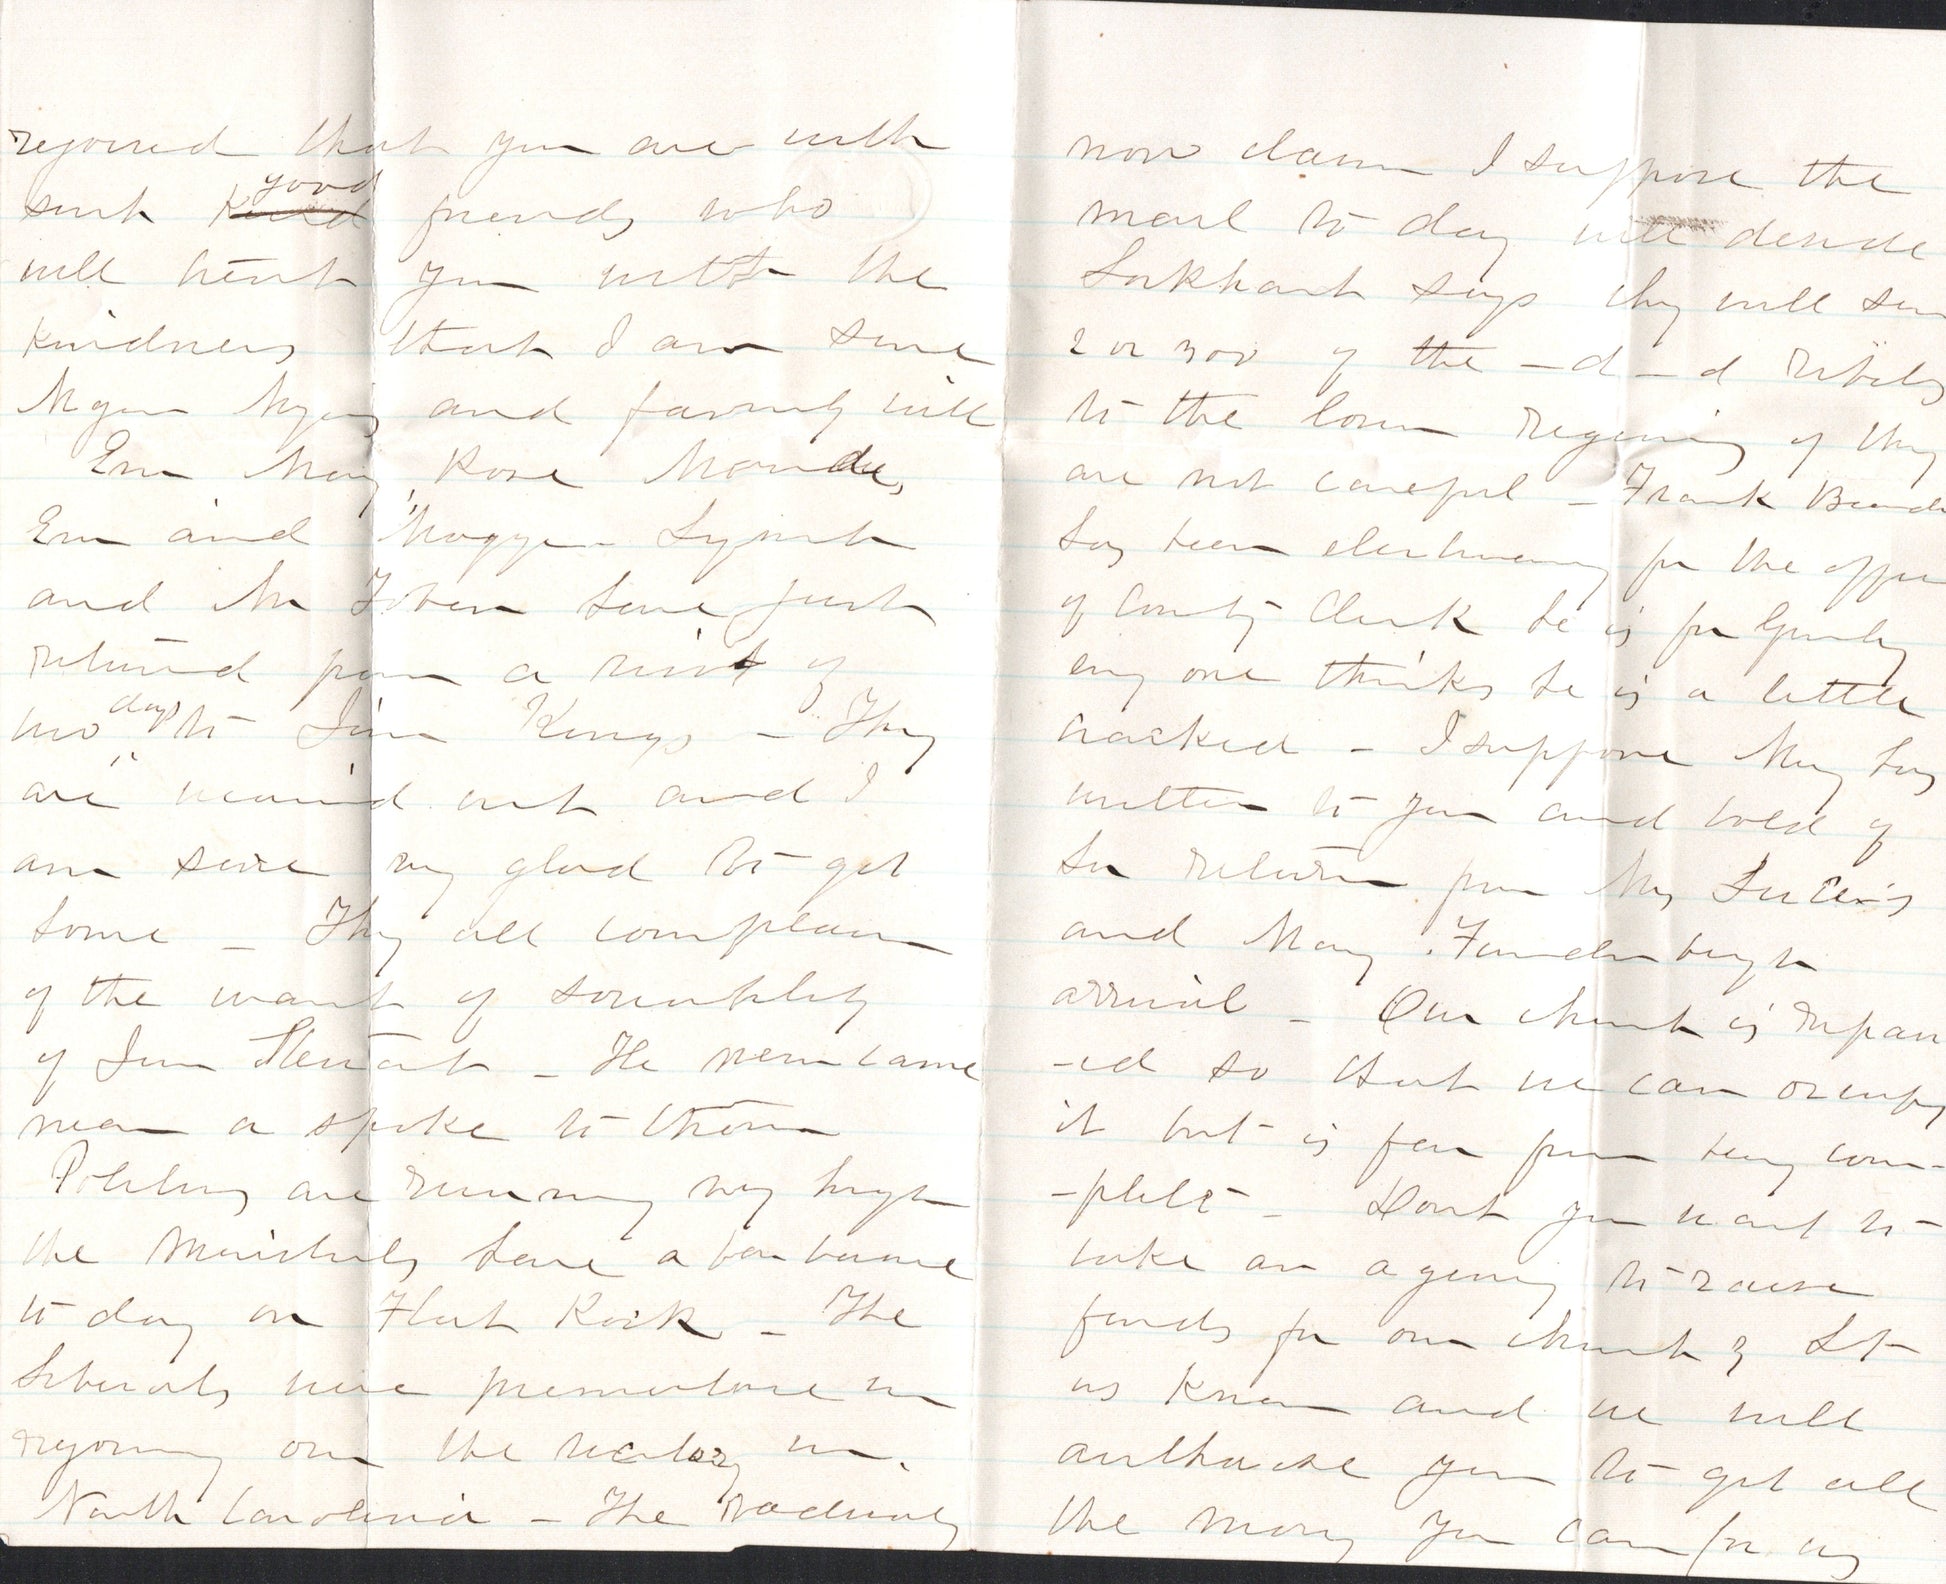 rejoiced that you are with
such Kind good friends who
will treat you with the
kindness that I am sure
Myers and family will
Em May, Rose
Em and Maggie Lynch
and Mr Tobin have just
returned from a visit of
two days to Jim Kings - They
are wearied out and I
am sure very glad to get
home - They all complain
of the want of sociability
of Jim Stewart - He never came
near or spoke to them
Politics are running very high
the Ministerials have a barbacue
to day on Flat Rock - The
Liberals were premature in
rejoicing over the victory in
North Carolina - The Radicals
now claim I suppose the
mail to day will decide
Lockhart says they will send
2 or 300 of the - d - d rebels
to the lower regions if they
are not careful - Frank
has been electioneering for the office
of County Clerk he is for Greeley
every one thinks he is a little
cracked - I suppose May has
written to you and told of
her return from Mrs
and May Funderburgh
arrival - Our church is repair
-ed so that we can occupy
it but is far from being com-
-plete - Dont you want to
take an agency to raise
funds for our church? Let
us know and we will
authorise you to get all
the money you can for us